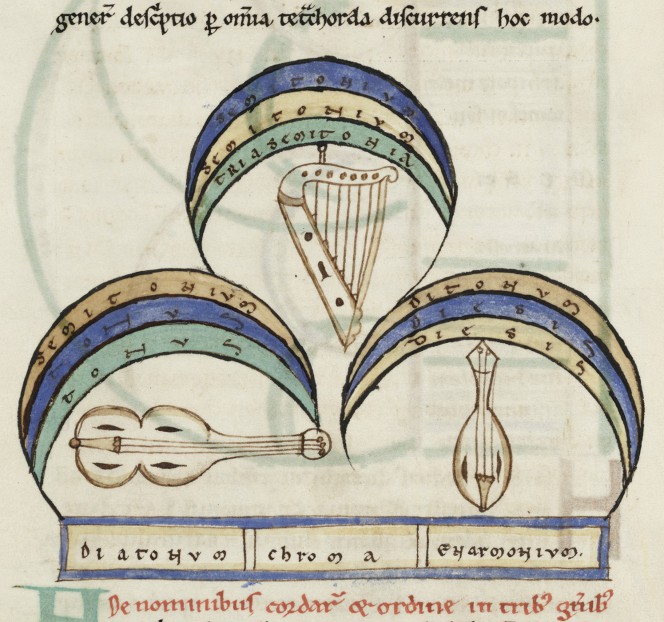 gener̄ desc̄ptio ꝑ om̄ia tet̄chorda discurrens hoc modo.
SEMITONIUM
SEMITONIUM
TRIASEMITONIA
SEMITONIUM
TONUS
TONUS
DITONUM
DIESIS
DIESIS
DIATONUM
chroma
ENARMONIUM.
De nominibus cordar̄ & ordine in trib⁹ gn̄ib⁹